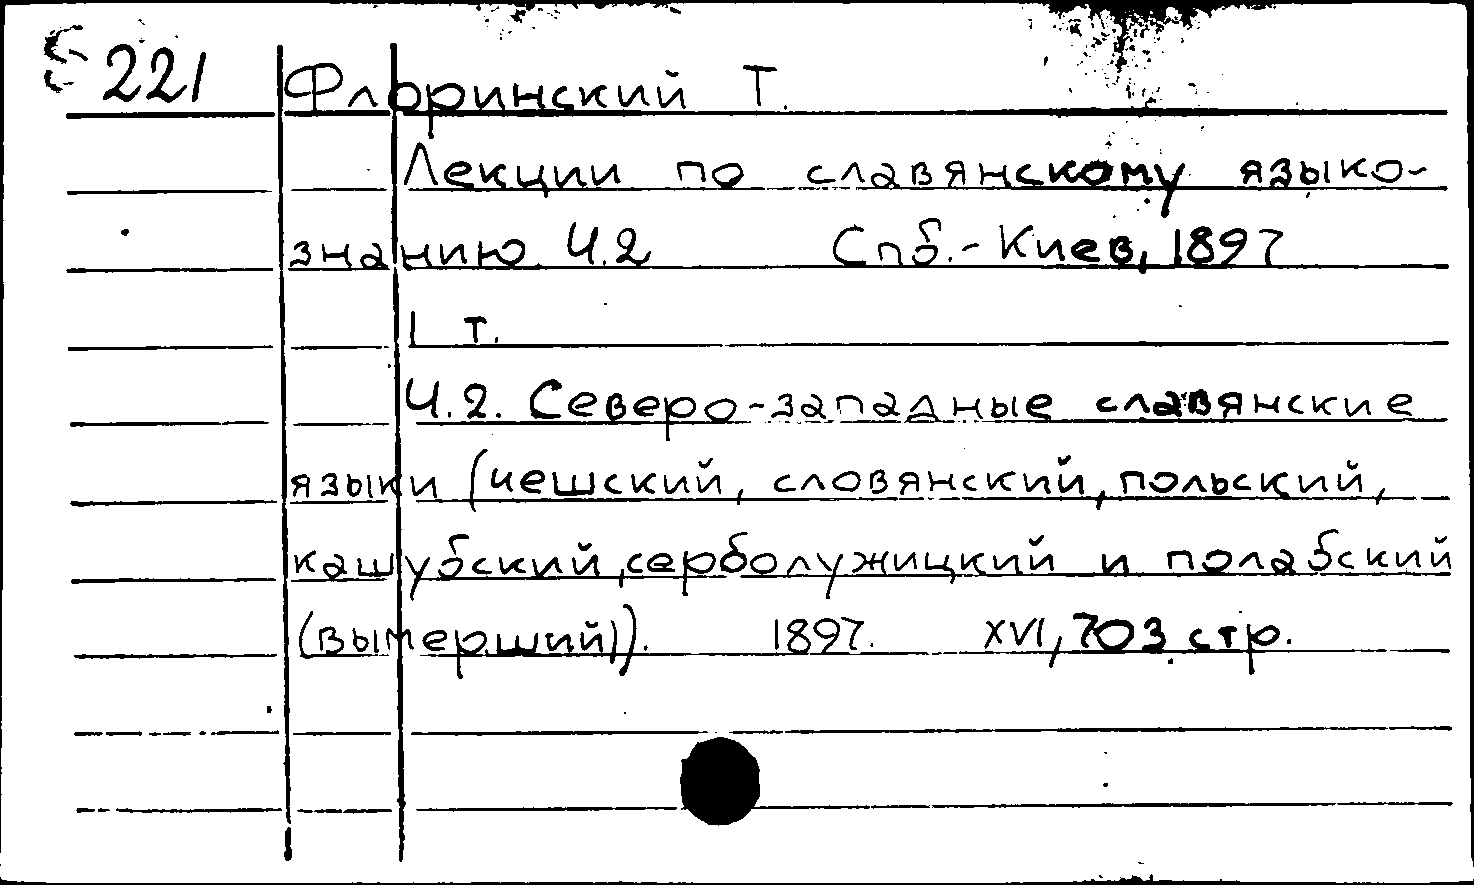 221 Флоринский Т.
Лекции по славянскому языко-
знанию Ч.2 Спб.-Киев, 1897
1 т.
Ч.2. Северо-западные славянские
языки (чешский, словянский, польский,
кашубский, серболужицкий и полабский
(вымерший)). 1897. XVI, 703 стр.